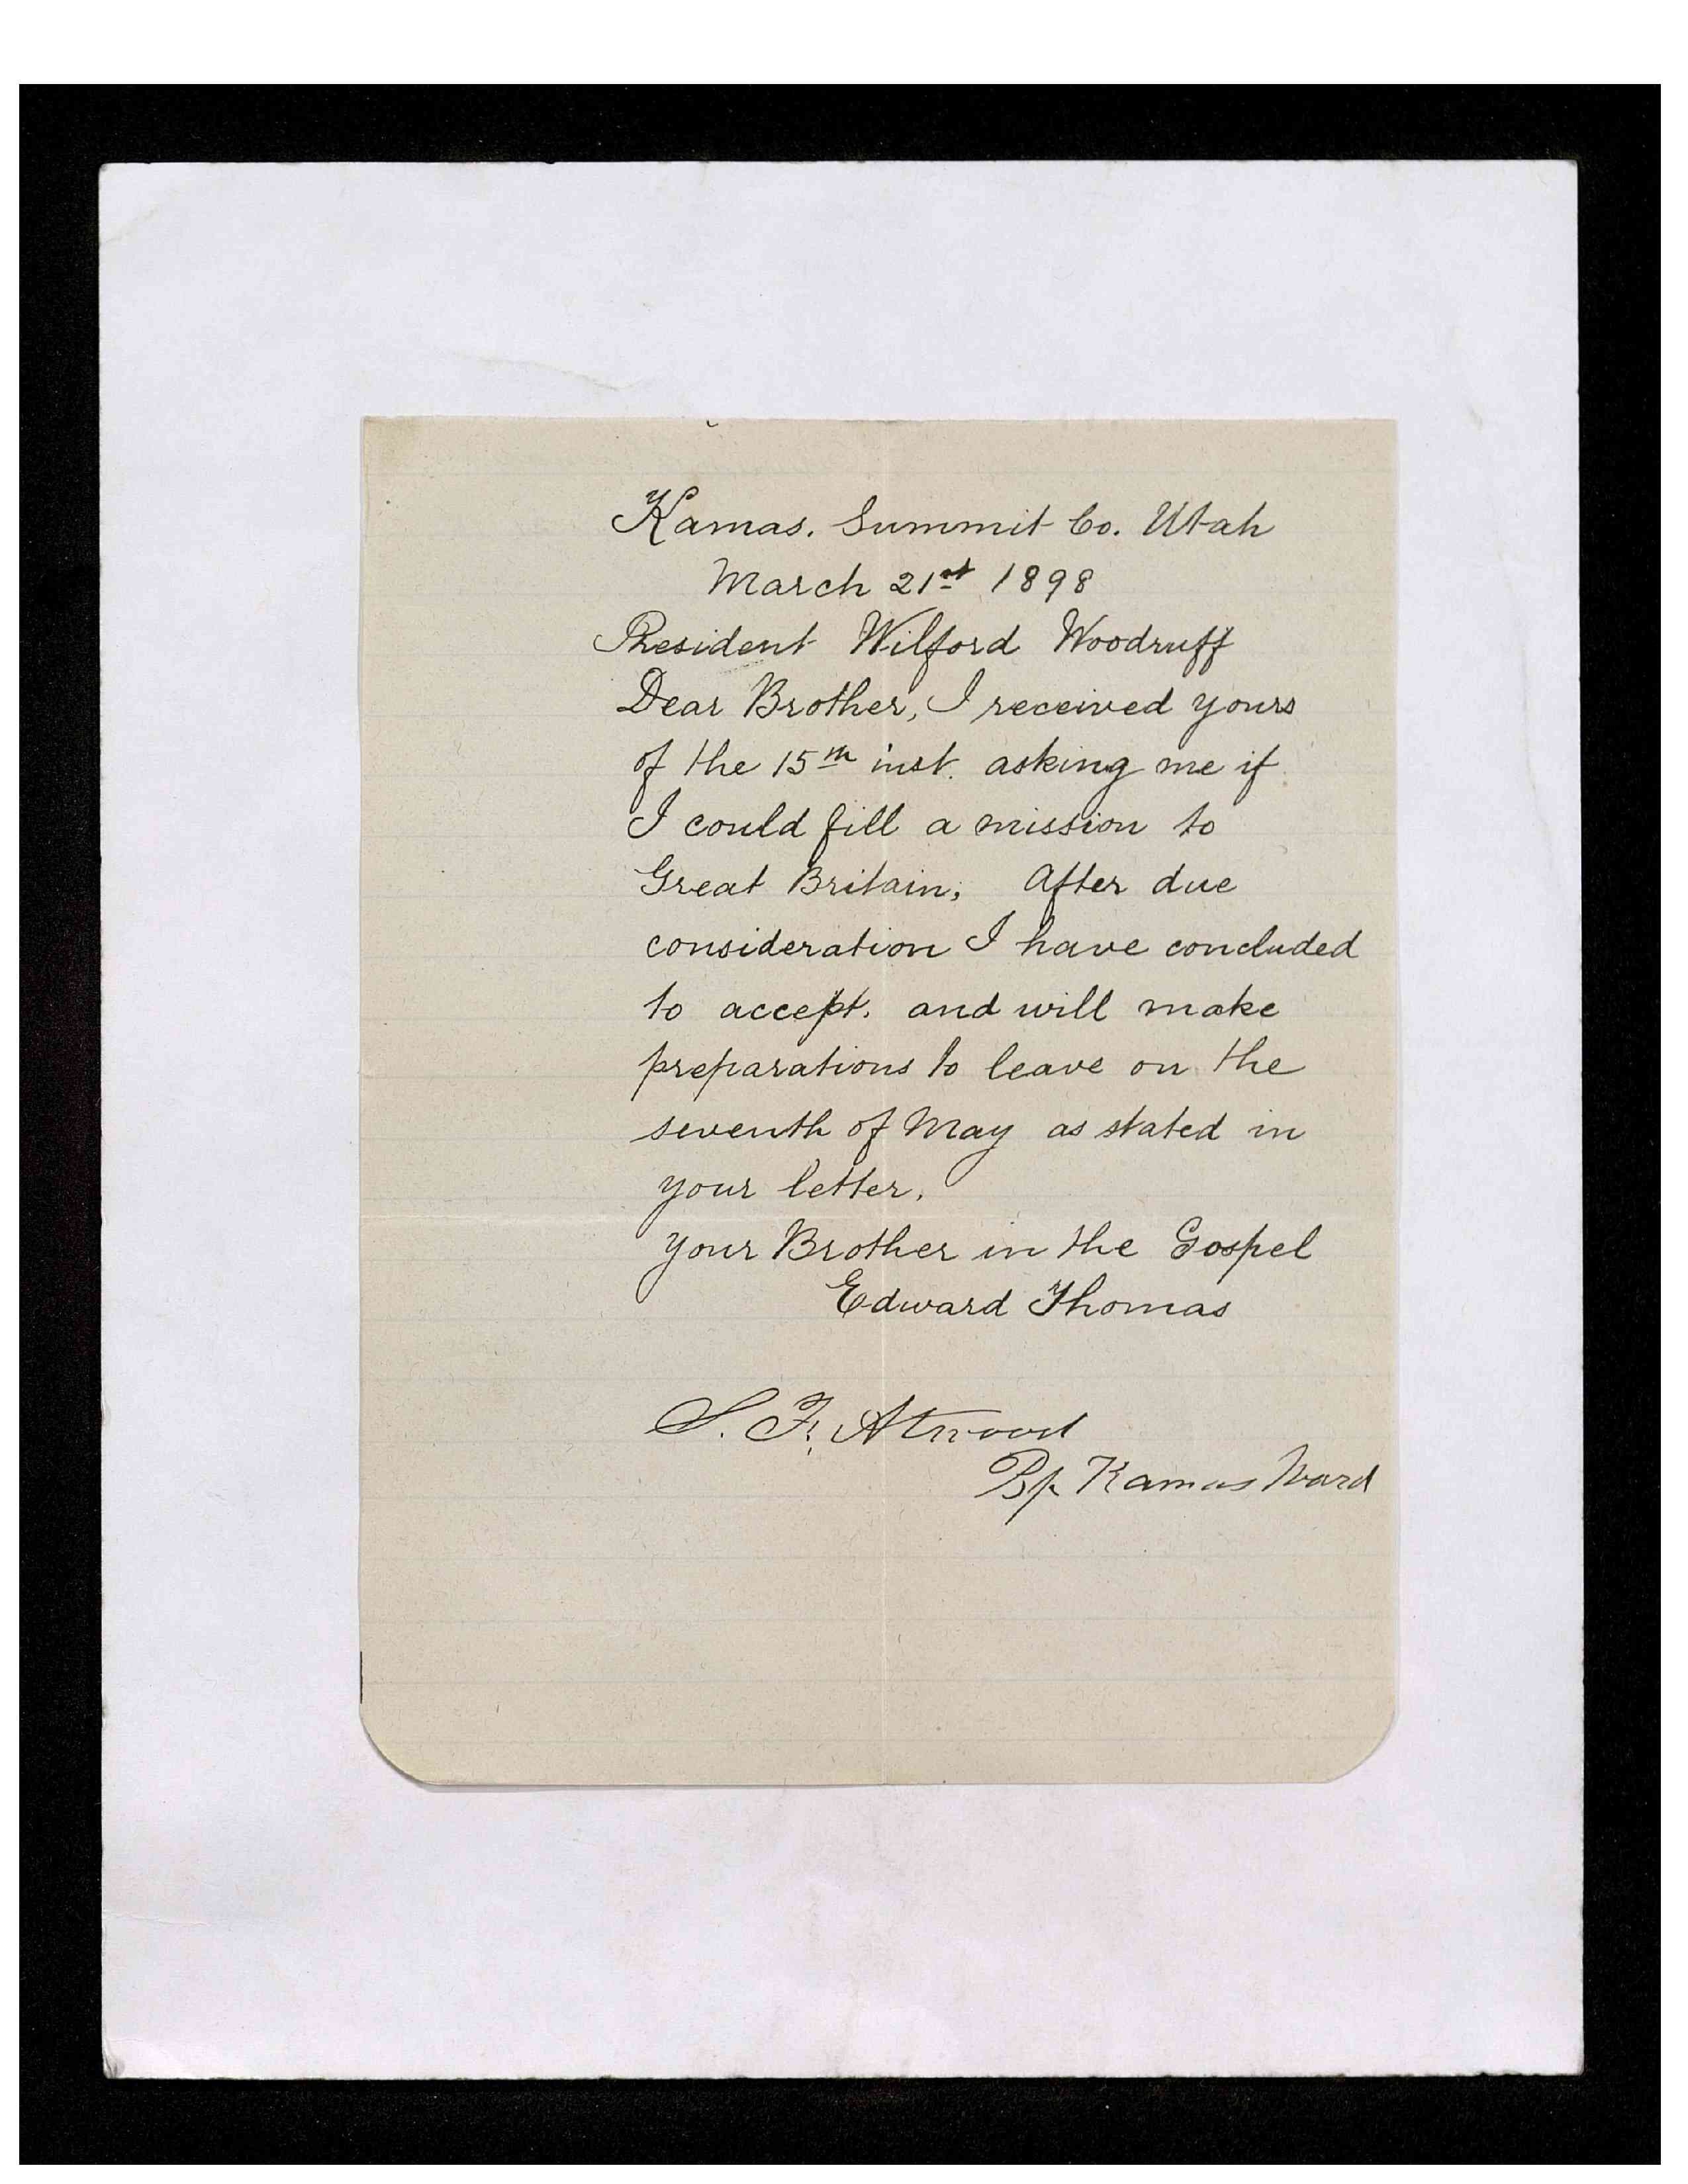 Kamas. Summit Co. Utah
March 21st 1898
President Wilford Woodruff
Dear Brother, I received yours
of the 15th inst. asking me if
I could fill a mission to
Great Britain; After due
consideration I have concluded
to accept. and will make
preparations to leave on the
seventh of May as stated in
your letter.
your Brother in the Gospel
Edward Thomas
S. F. Atwood
Bp Kamas Ward